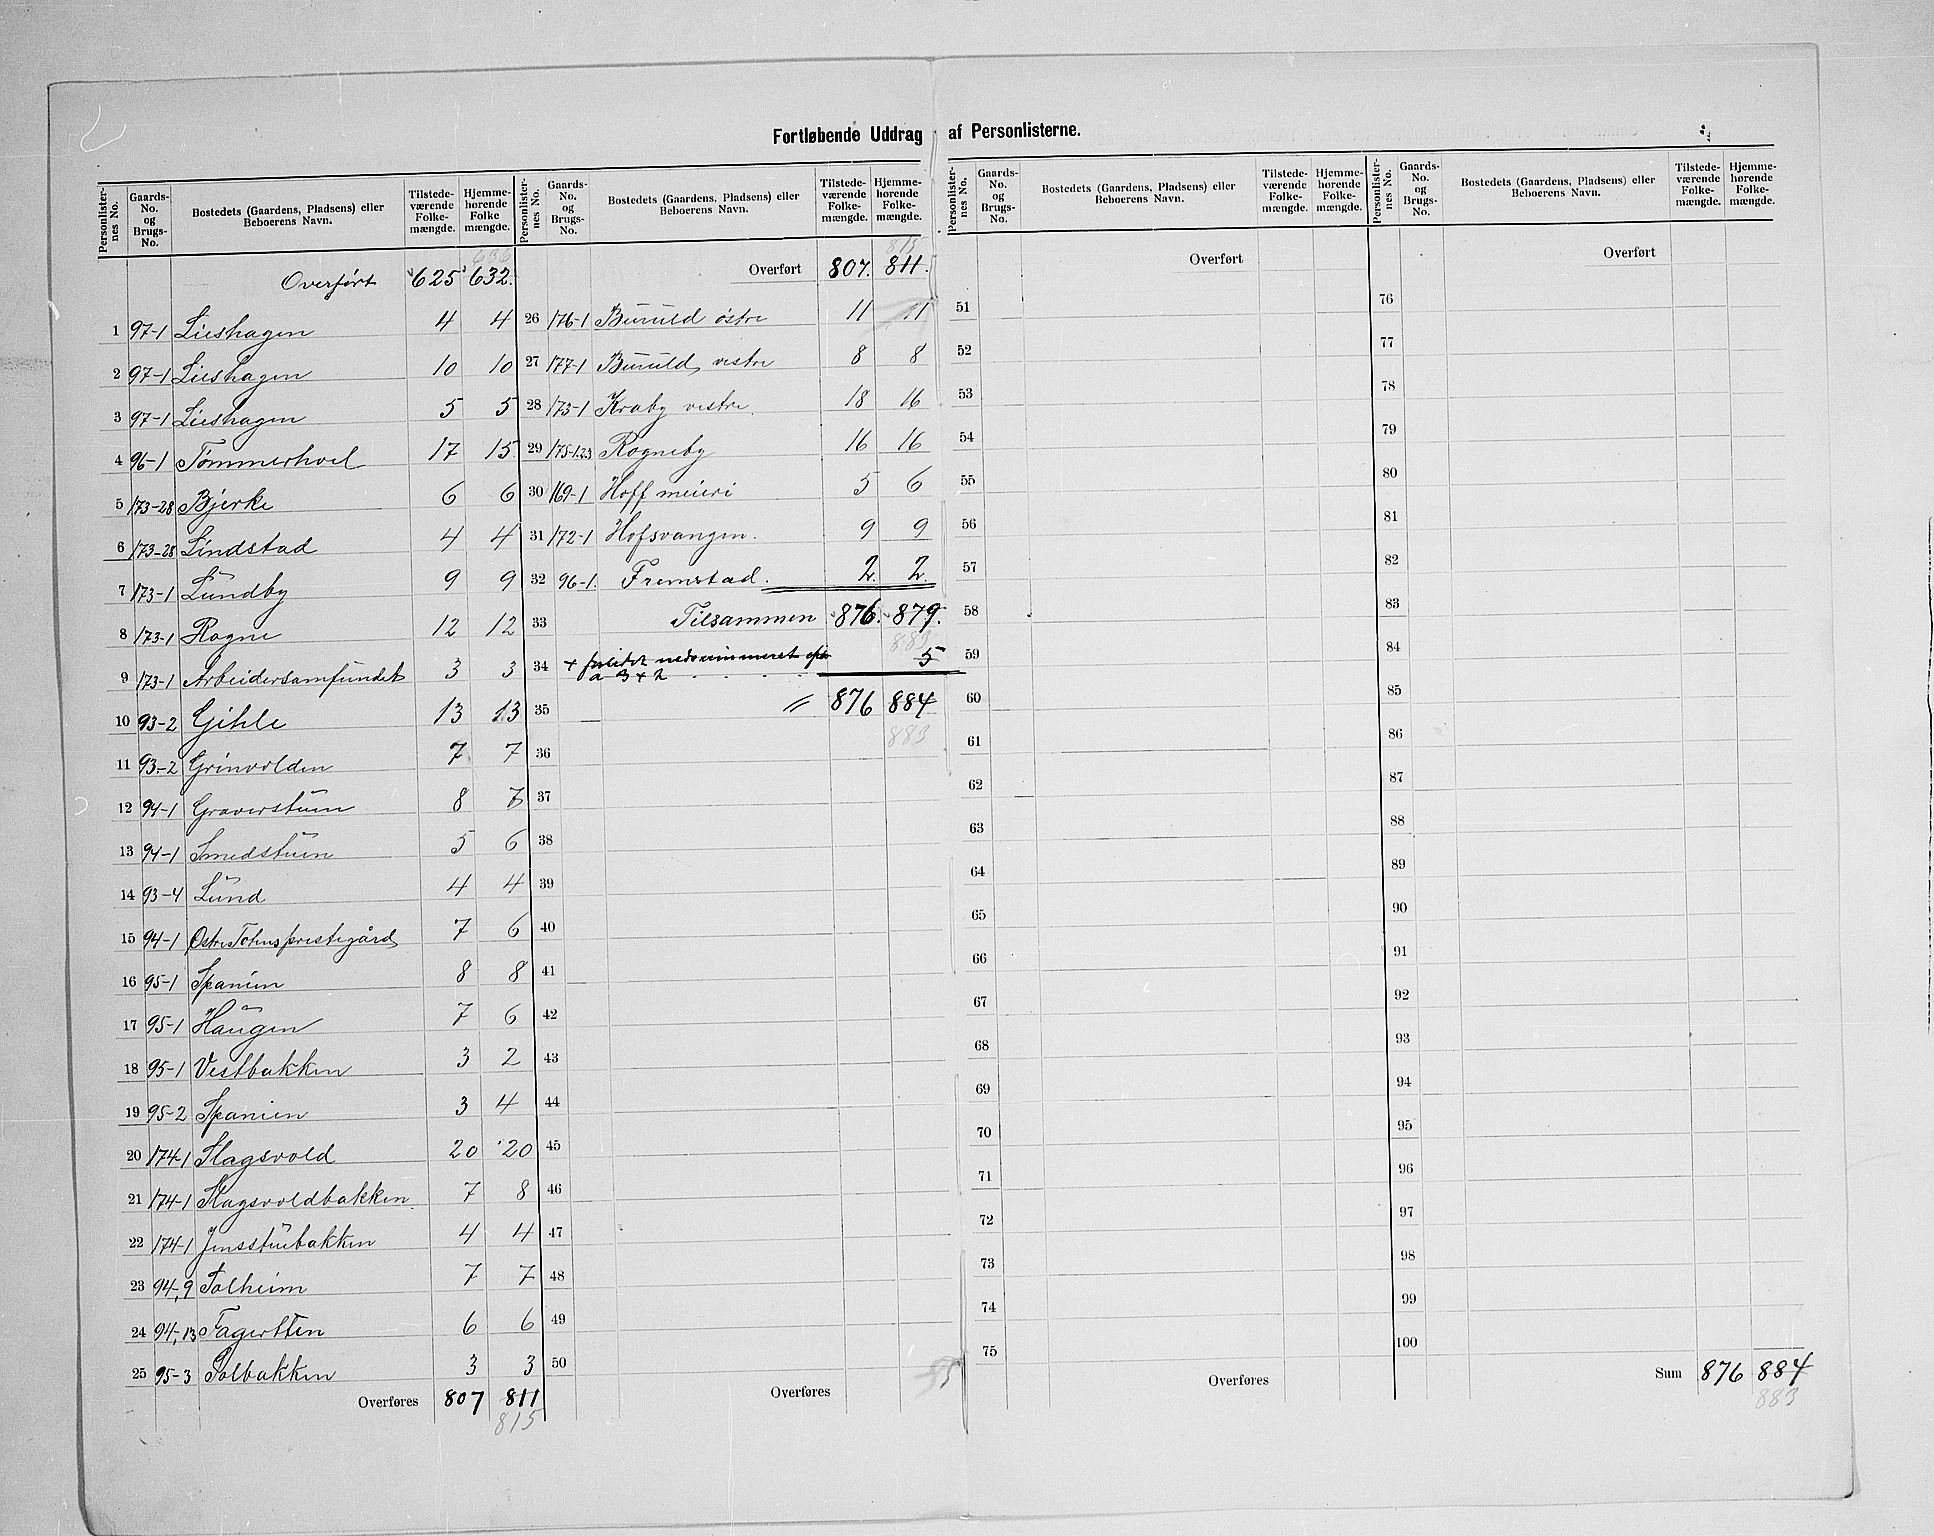 Fortløbende Uddrag af Personlisterne.
Personlisternes No. Gaards-No. og Brugs-No. Bostedets (Gaardens, Pladsens) eller Beboerens Navn. Tilstedeværende Folkemængde. Hjemmehørende Folkemængde.
636
Overført 625 632.
1 97-1 Lieshagen 4 4
2 97-1 Lieshagen 10 10
3 97-1 Lieshagen 5 5
4 96-1 Tømmerhol 17 15
5 173-28 Bjerke 6 6
6 173-28 Lindstad 4 4
7 173-1 Lundby 9 9
8 173-1 Rogne 12 12
9 173-1 Arbeidersamfundet 3 3
10 93-2 Gihle 13 13
11 93-2 Grinvolden 7 7
12 94-1 Graverstuen 8 7
13 94-1 Smedstuen 5 6
14 93-4 Lund 4 4
15 94-1 Østre Totens prestegård 7 6
16 95-1 Spanien 8 8
17 95-1 Haugen 7 6
18 95-1 Vestbakken 3 2
19 95-2 Spanien 3 4
20 174-1 Slagsvold 20 20
21 174-1 Slagsvoldbakken 7 8
22 174-1 Jensstuebakken 4 4
23 94,9 Solheim 7 7
24 94,13 Fagertun 6 6
25 95-3 Solbakken 3 3
Overføres 807 811
815
Personlisternes No. Gaards-No. og Brugs-No. Bostedets (Gaardens, Pladsens) eller Beboerens Navn. Tilstedeværende Folkemængde. Hjemmehørende Folkemængde.
815
Overført 807. 811.
26 176-1 Buruld østre 11 11
27 177-1 Buruld vestre 8 8
28 173-1 Kraby vestre. 18 16
29 175-1.23 Rogneby 16 16
30 169-1 Hoff meieri 5 6
31 172-1 Hofsvangen. 9 9
32 96-1. Fremstad. 2 2.
33 Tilsammen 876. 879.
883
34 + 5
a 3 + 2
35 〃 876 884
883
36
37
38
39
40
41
42
43
44
45
46
47
48
49
50
Overføres
Personlisternes No. Gaards-No. og Brugs-No. Bostedets (Gaardens, Pladsens) eller Beboerens Navn. Tilstedeværende Folkemængde. Hjemmehørende Folkemængde.
Overført
51
52
53
54
55
56
57
58
59
60
61
62
63
64
65
66
67
68
69
70
71
72
73
74
75
Overføres
Personlisternes No. Gaards-No. og Brugs-No. Bostedets (Gaardens, Pladsens) eller Beboerens Navn. Tilstedeværende Folkemængde. Hjemmehørende Folkemængde.
Overført
76
77
78
79
80
81
82
83
84
85
86
87
88
89
90
91
92
93
94
95
96
97
98
99
100
Sum 876 884
883